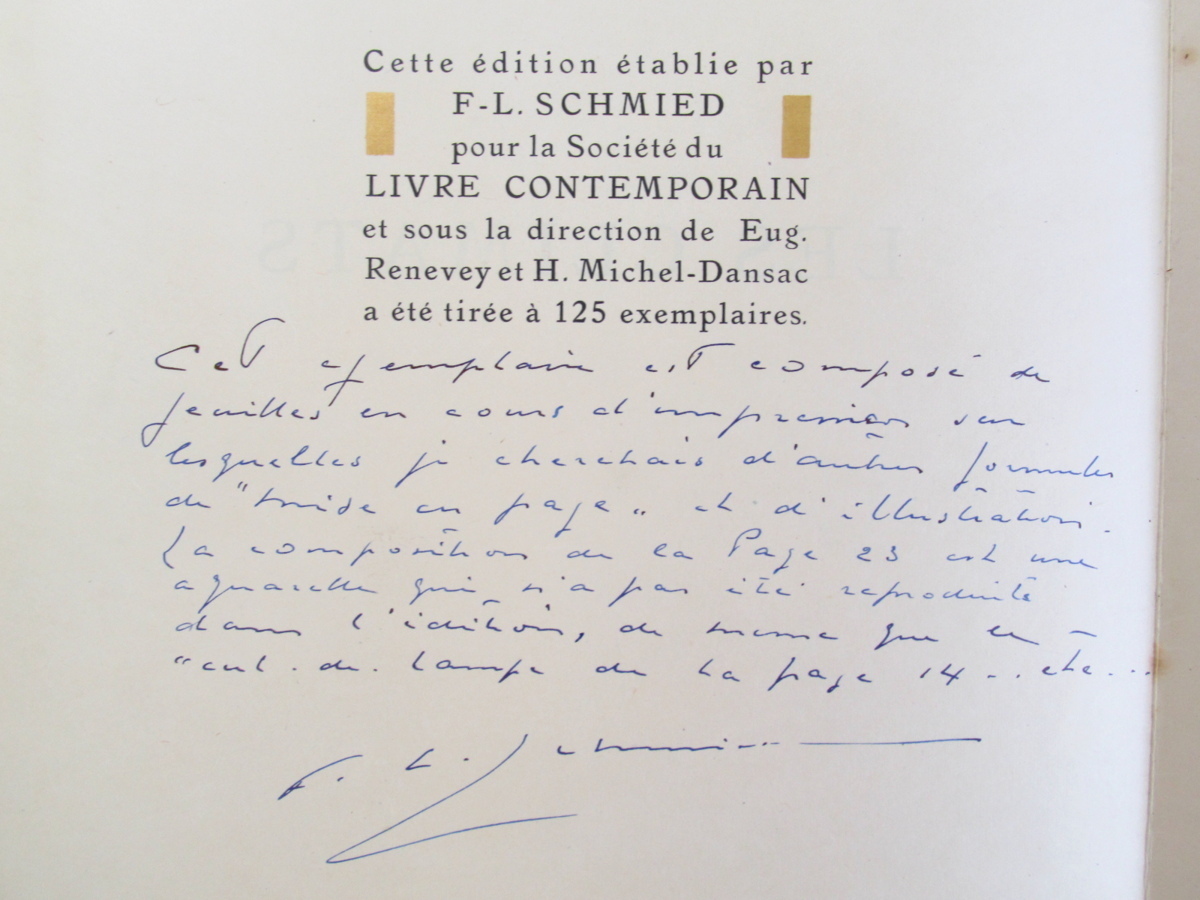 Cette édition établie par
F-L. SCHMIED
pour la Société du
LIVRE CONTEMPORAIN
et sous la direction de Eug.
Renevey et H. Michel-Dansac
a été tirée à 125 exemplaires.
Cet exemplaire est composé de
feuilles en cours d'impression sur
lesquelles je cherchais d'autres formules
de "mise en page" et d'illustration.
La composition de la Page 23 est une
aquarelle qui n'a pas été reproduite
dans l'édition, de meme que le
"cul. de. lampe de la page 14 .. etc...
F. L. Schmied